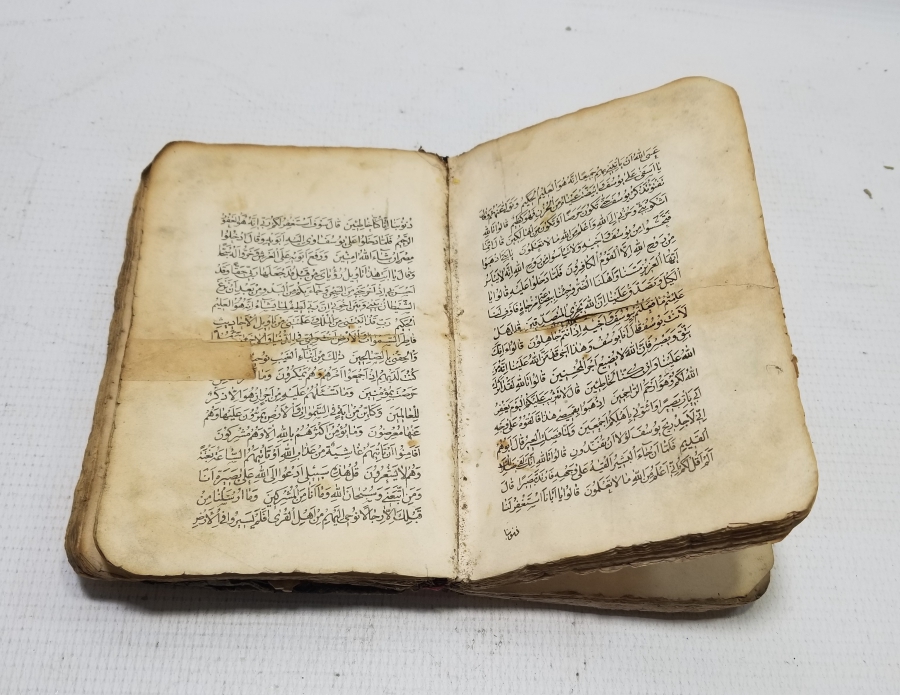 عسى الله ان ياتيني بهم جميعا انه هو العليم الحكيم وتولى عنهم وقال
يا اسفى على يوسف وابيضت عيناه من الحزن فهو كظيم قالوا تالله
تفتؤا تذكر يوسف حتى تكون حرضا او تكون من الهالكين قال انما
اشكو بثي وحزني الى الله واعلم من الله ما لا تعلمون يا بني اذهبوا
فتحسسوا من يوسف واخيه ولا تيأسوا من روح الله انه لا ييأس
من روح الله الا القوم الكافرون فلما دخلوا عليه قالوا يا
ايها العزيز مسنا واهلنا الضر وجئنا ببضاعة مزجاة فاوف لنا
الكيل وتصدق علينا ان الله يجزي المتصدقين قال هل
علمتم ما فعلتم بيوسف واخيه اذ انتم جاهلون قالوا ائنك
لانت يوسف قال انا يوسف وهذا اخي قد من الله علينا انه من
يتق ويصبر فان الله لا يضيع اجر المحسنين قالوا تالله لقد اثرك
الله علينا وان كنا لخاطئين قال لا تثريب عليكم اليوم يغفر
الله لكم وهو ارحم الراحمين اذهبوا بقميصي هذا فالقوه على وجه
ابي يات بصيرا واتوني باهلكم اجمعين ولما فصلت العير قال ابوهم
اني لاجد ريح يوسف لولا ان تفندون قالوا تالله انك لفي ضلالك
القديم فلما ان جاء البشير القاه على وجهه فارتد بصيرا قال
الم اقل لكم اني اعلم من الله ما لا تعلمون قالوا يا ابانا استغفر لنا
ذنوبنا
ذنوبنا انا كنا خاطئين قال سوف استغفر لكم ربي انه هو الغفور
الرحيم فلما دخلوا على يوسف اوى اليه ابويه وقال ادخلوا
مصر ان شاء الله امنين ورفع ابويه على العرش وخروا له سجدا
وقال يا ابت هذا تاويل رؤياي من قبل قد جعلها ربي حقا وقد
احسن بي اذ اخرجني من السجن وجاء بكم من البدو من بعد ان نزغ
الشيطان بيني وبين اخوتي ان ربي لطيف لما يشاء انه هو العليم
الحكيم رب قد اتيتني من الملك وعلمتني من تاويل الاحاديث
فاطر السموات والارض انت وليي في الدنيا والاخرة
والحقني بالصالحين ذلك من انباء الغيب نوحيه
كنت لديهم اذ اجمعوا امرهم وهم يمكرون وما
حرصت بمؤمنين وما تسئلهم عليه من اجر ان هو الا ذكر
للعالمين وكاين من اية في السموات والارض يمرون عليها وهم
عنها معرضون وما يؤمن اكثرهم بالله الا وهم مشركون
افامنوا ان تاتيهم غاشية من عذاب الله او تاتيهم الساعة بغتة
وهم لا يشعرون قل هذه سبيلي ادعوا الى الله على بصيرة انا
ومن اتبعني وسبحان الله وما انا من المشركين وما ارسلنا من
قبلك الا رجالا نوحي اليهم من اهل القرى افلم يسيروا في الارض